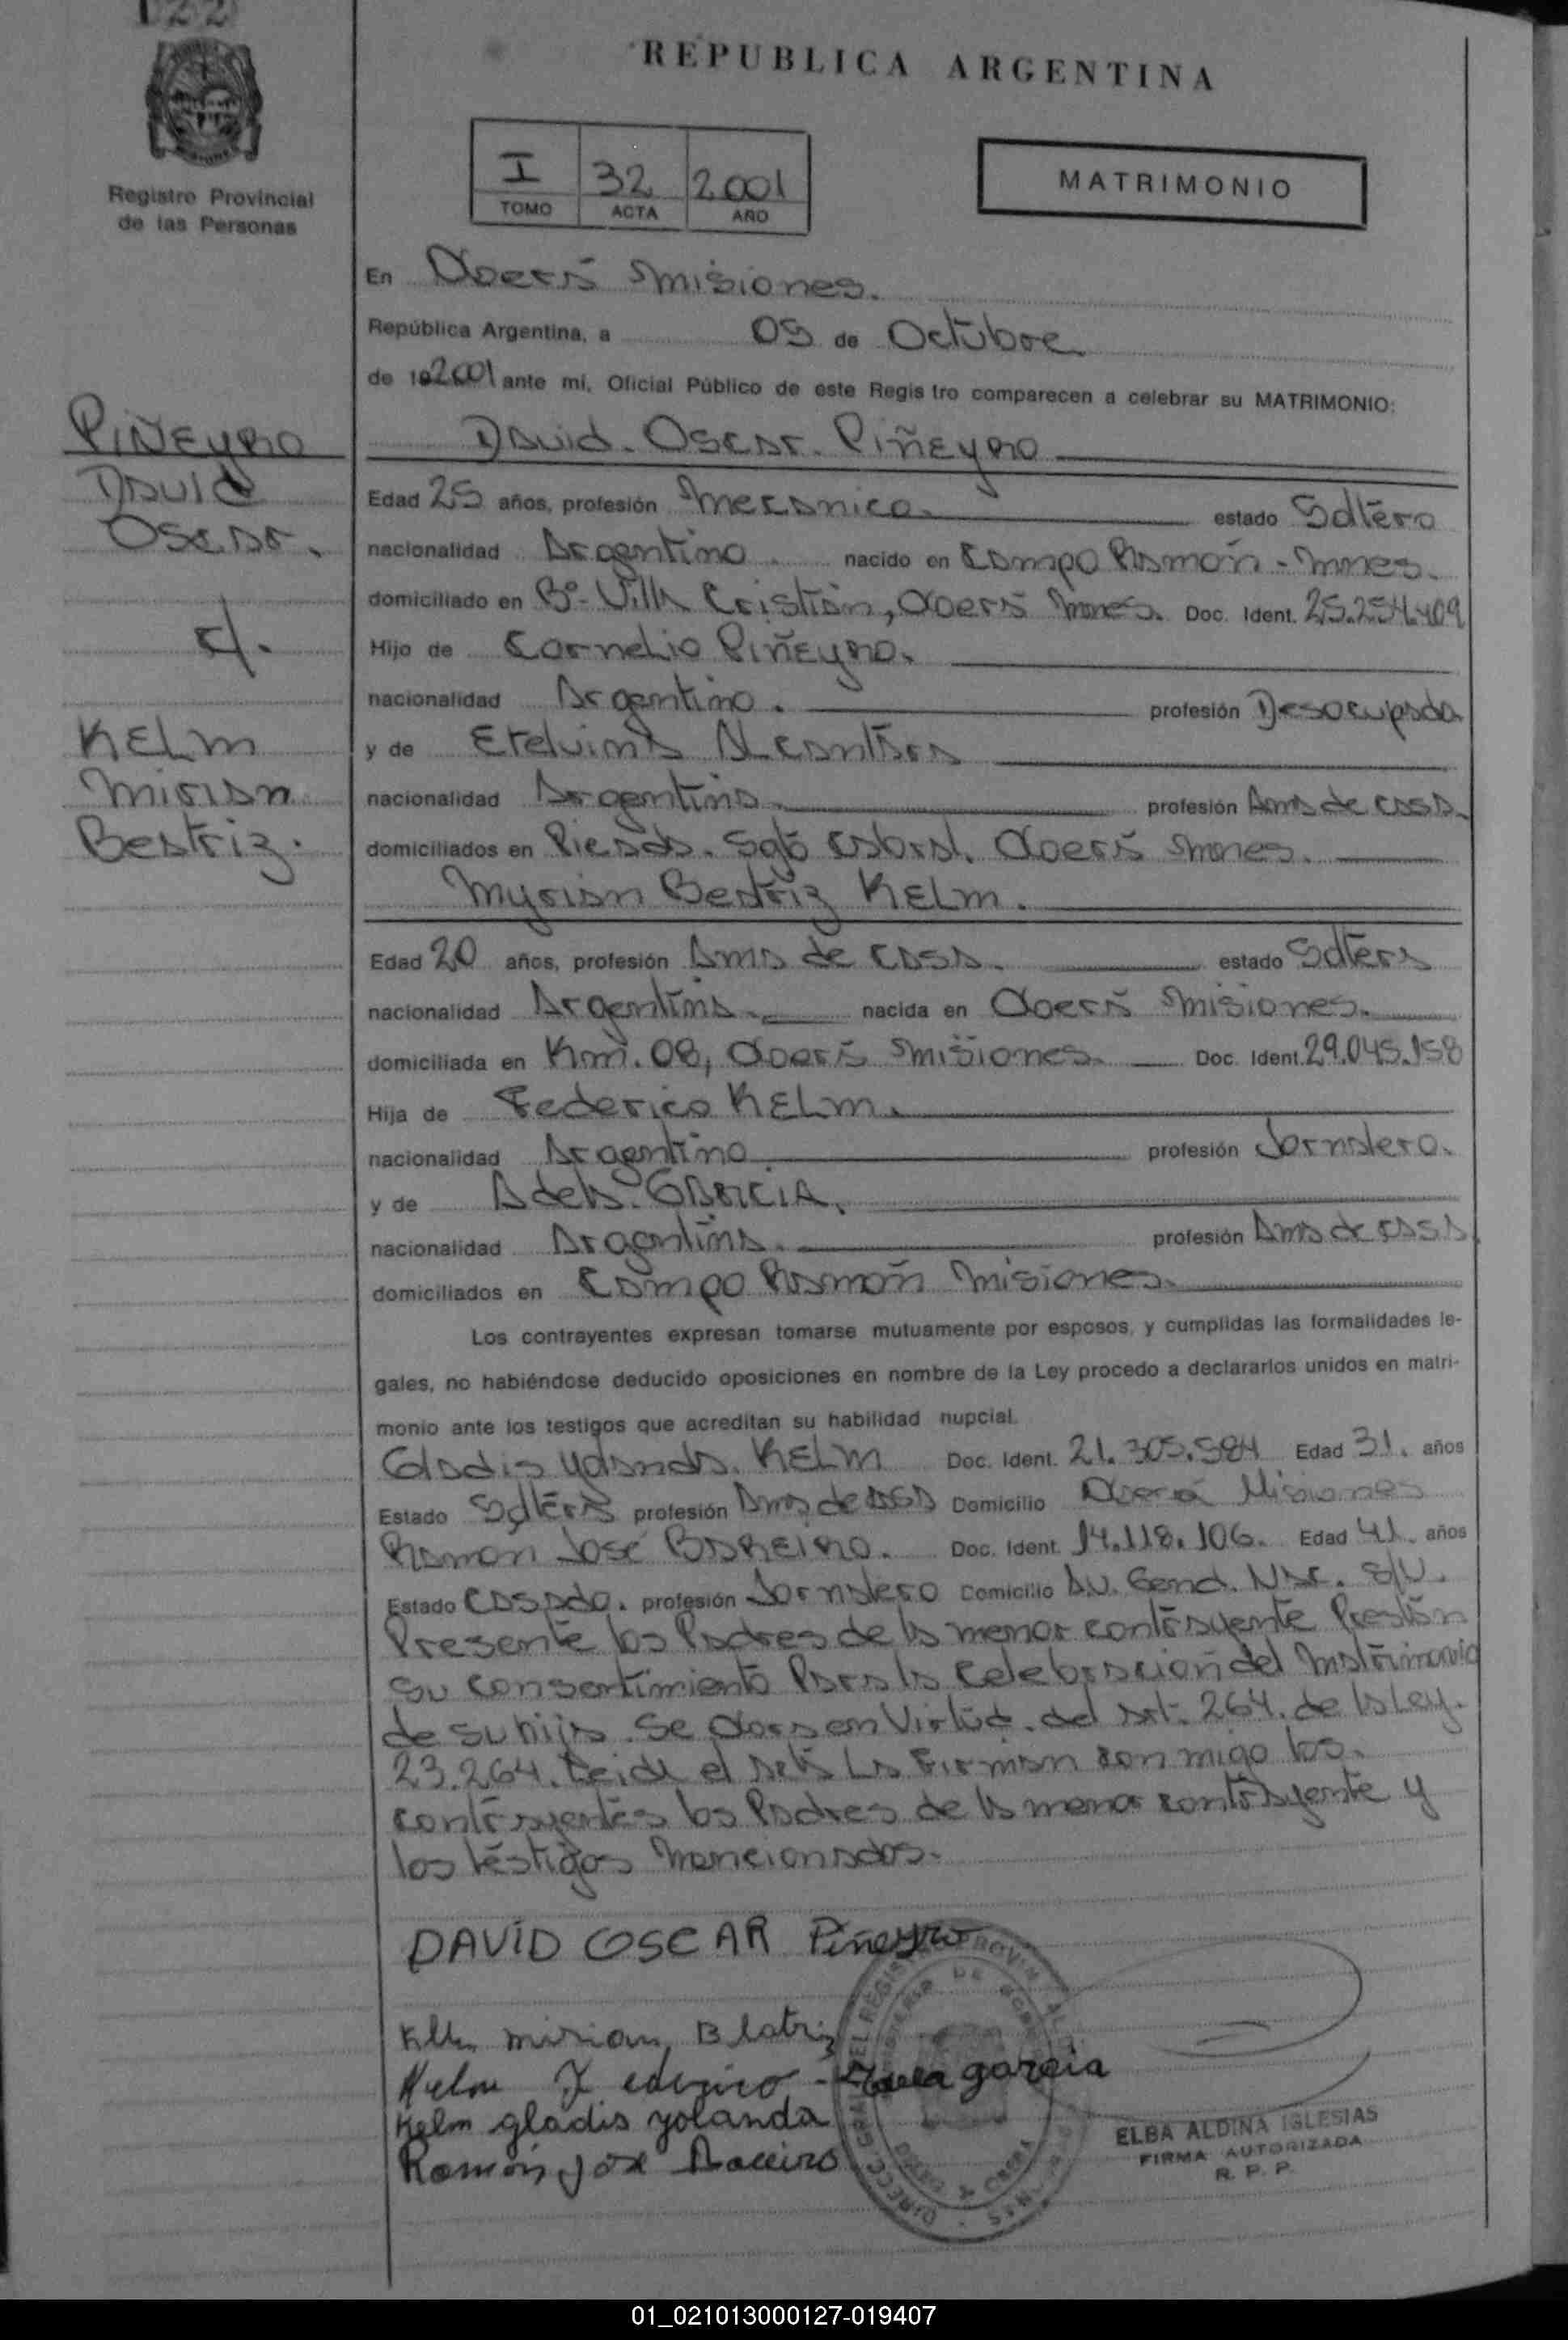 122
REPUBLICA ARGENTINA
Registro Provincial
de las Personas
I 32 2001
TOMO ACTA AÑO
MATRIMONIO
En Oberá Misiones.
República Argentina, a 05 de Octubre
de 192001 ante mí, Oficial Público de este Registro comparecen a celebrar su MATRIMONIO:
PIÑEyRO
DAvid
OscAr.
c/.
KELM
MiriAn
BeAtriz.
DAvid. OscAr. PiñEyRO
Edad 25 años, profesión MecAnico. estado Soltero
nacionalidad Argentino. nacido en CAmpo RAmón - Mnes.
domiciliado en Bº- Villa CristiAn, Oberá Mnes. Doc. Ident. 25.254.409
Hijo de Cornelio PiñEyRO.
nacionalidad Argentino. profesión DesocupAdo
y de EtelvinA ALcantArA
nacionalidad ArgentinA. profesión AmA de cAsA.
domiciliados en PicAdA. Sgto CAbrAl. Oberá Mnes.
MyriAn BeAtriz KELM.
Edad 20 años, profesión AmA de CAsA. estado SolterA
nacionalidad ArgentinA. nacida en Oberá Misiones.
domiciliada en Km. 08, Oberá Misiones. Doc. Ident. 29.045.158
Hija de Federico KELM.
nacionalidad Argentino profesión JornAlero.
y de AdelA. GARCIA.
nacionalidad ArgentinA. profesión AmA de CAsA.
domiciliados en CAmpo RAmón Misiones.
Los contrayentes expresan tomarse mutuamente por esposos, y cumplidas las formalidades le-
gales, no habiéndose deducido oposiciones en nombre de la Ley procedo a declararlos unidos en matri-
monio ante los testigos que acreditan su habilidad nupcial.
GlAdis YolAndA. KELM Doc. Ident. 21.305.584 Edad 31. años
Estado SolterA profesión AmA de cAsA Domicilio Oberá Misiones
RAmon José BARREIRO. Doc. Ident. 14.118.106. Edad 41. años
Estado CAsAdo. profesión JornAlero Domicilio Av. Gend. NAc. S/N.
Presente los PAdres de lA menor contrAyente PrestAn
su consentimiento PArA lA CelebrAción del MAtrimonio
de su hijA. Se obrA en Virtud. del Art. 264. de lA Ley.
23.264. LeidA el ActA LA FirmAn conmigo los.
contrAyentes los PAdres de lA menor contrAyente y
los testigos MencionAdos.
DAVID OSCAR Piñeyro
Kelm mirian Beatriz
Kelm Federico - Adela garcia
Kelm gladis yolanda
Ramón José Barreiro
ELBA ALDINA IGLESIAS
FIRMA AUTORIZADA
R. P. P.
01_021013000127-019407